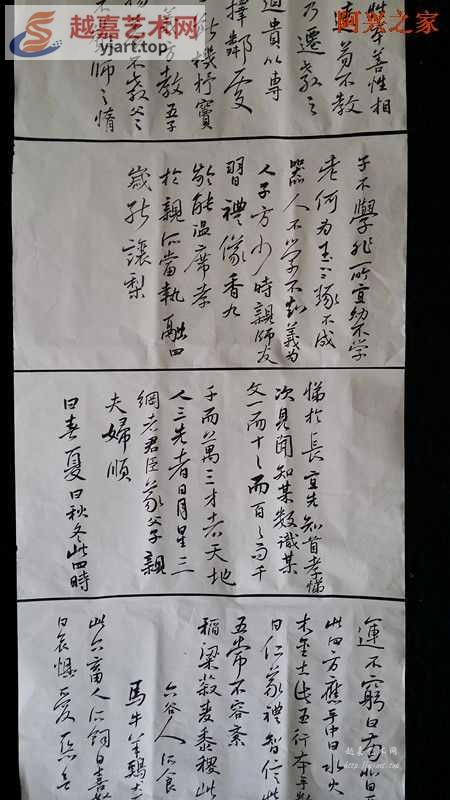 越嘉艺术网
yjart.top
阿兴之家
性本善性相
遠苟不教
乃遷教之
道貴以專
擇鄰處
機杼竇
方教五子
不教父之
師之惰
子不學非所宜幼不学
老何為玉不琢不成
器人不学不知義為
人子方少時親師友
習禮儀香九
齡能温席孝
於親所當執融四
歲能讓梨
悌於長宜先知首孝悌
次見聞知某數識某
文一而十十而百百而千
千而萬三才者天地
人三光者日月星三
綱者君臣義父子親
夫婦順
曰春夏曰秋冬此四時
運不窮曰南北曰
此四方應乎中曰水火
木金土此五行本乎數
曰仁義禮智信此
五常不容紊
稻粱菽麦黍稷此
六谷人所食
馬牛羊鷄犬
此六畜人所飼曰喜怒
曰哀懼愛惡